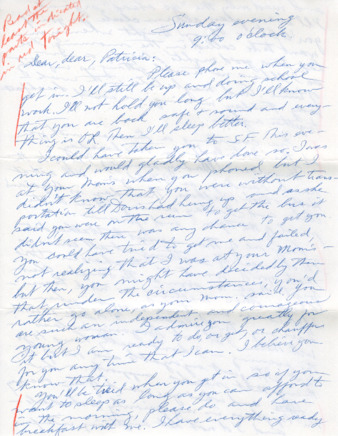 Read at
least the
parts indicated
in red tonight.
Sunday evening
9:00 o'clock
Dear, dear, Patricia:
Please phone me when you
get in. I'll still be up and doing school
work. I'll not hold you long but I'll know
that you are back safe & sound and every-
thing is OK. Then I'll sleep better.
I could have taken you to SF this eve-
ning and would gladly have done so. I was
at your Mom's when you phoned, but I
didn't know that you were without trans-
portation till you had hung up and as she
said you were on the run to get the bus it
didn't seem there was any chance to get you
You could have tried to get me and failed,
not realizing that I was at your Mom's –
but then, you might have decided by then
that under the circumstances, you'd
rather go alone, as your mom said, you
are such an independent and courageous
young woman. I admire you greatly for
it but I am ready to do, or go, or chauffeur
for you any time that I can. I believe you
know that.
You'll be tired when you get in so if you
want to sleep as long as you can afford to
in the morning, please do and have
breakfast with me. I have everything ready